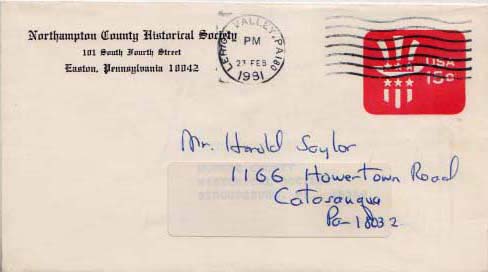 Northampton County Historical Society
101 South Fourth Street
Easton, Pennsylvania 18042
LEHIGH VALLEY, PA 180
PM
23 FEB
1991
USA
15c
Mr. Harold Saylor
1166 Howertown Road
Catasauqua
Pa-18032